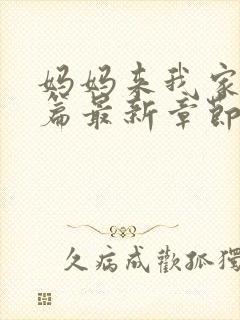 妈妈来我家
篇最新章節
久病成歡孤獨